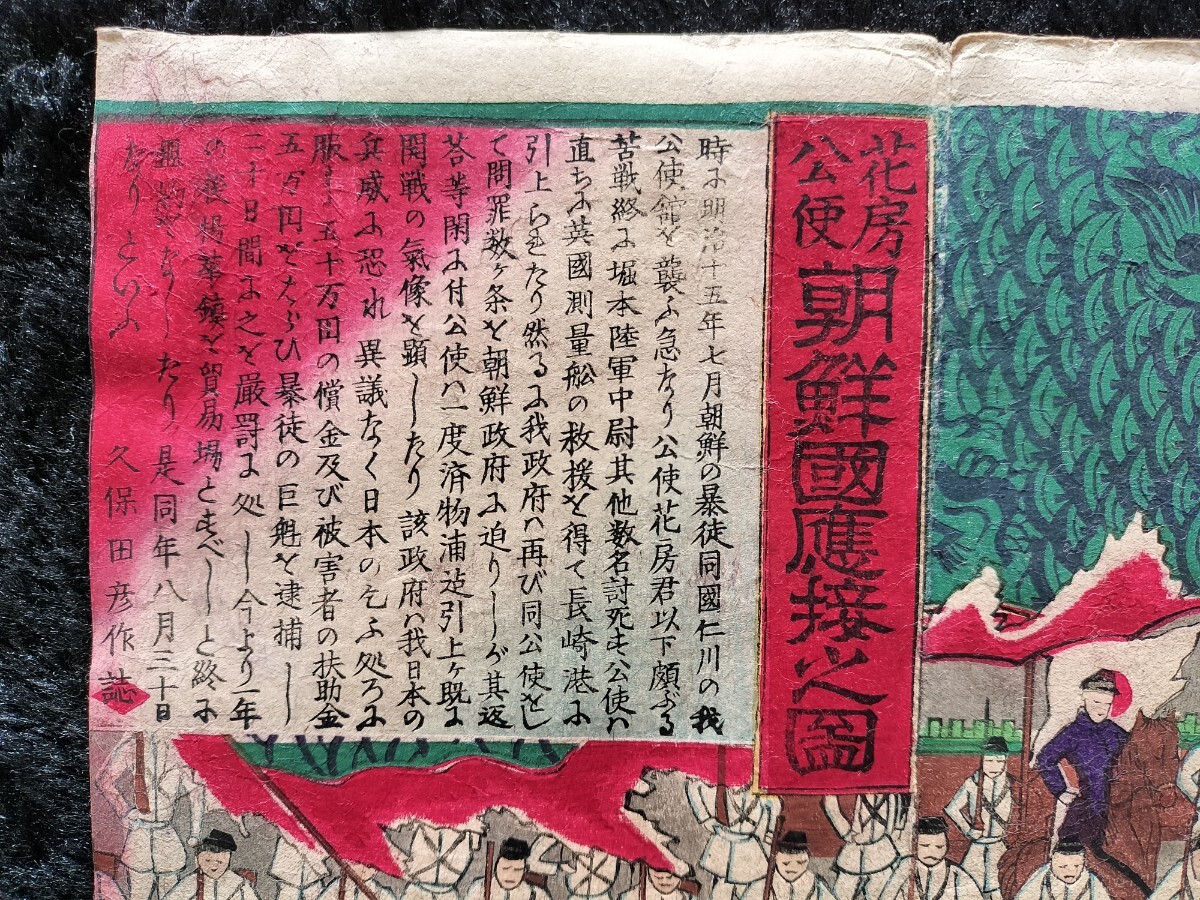 花房
公使
朝鮮國應接之圖
時に明治十五年七月朝鮮の暴徒同國仁川の我
公使舘を襲ふ急なり公使花房君以下頗ぶる
苦戦終に堀本陸軍中尉其他数名討死す公使ハ
直ちに英國測量舩の救援を得て長崎港に
引上られたり然るに我政府ハ再び同公使をし
て問罪数ヶ条を朝鮮政府に迫りしが其返
荅等閑に付公使ハ一度済物浦迠引上ヶ既に
開戦の氣像を顕したり該政府ハ我日本の
兵威に恐れ異議なく日本の乞ふ処ろに
服し五十万円の償金及び被害者の扶助金
五万円をはらひ暴徒の巨魁を逮捕し
二十日間に之を厳罰に処し今より一年
の後楊華鎮を貿易場とすべしと終に
をなしたり是同年八月三十日
なりといふ
久保田彦作誌